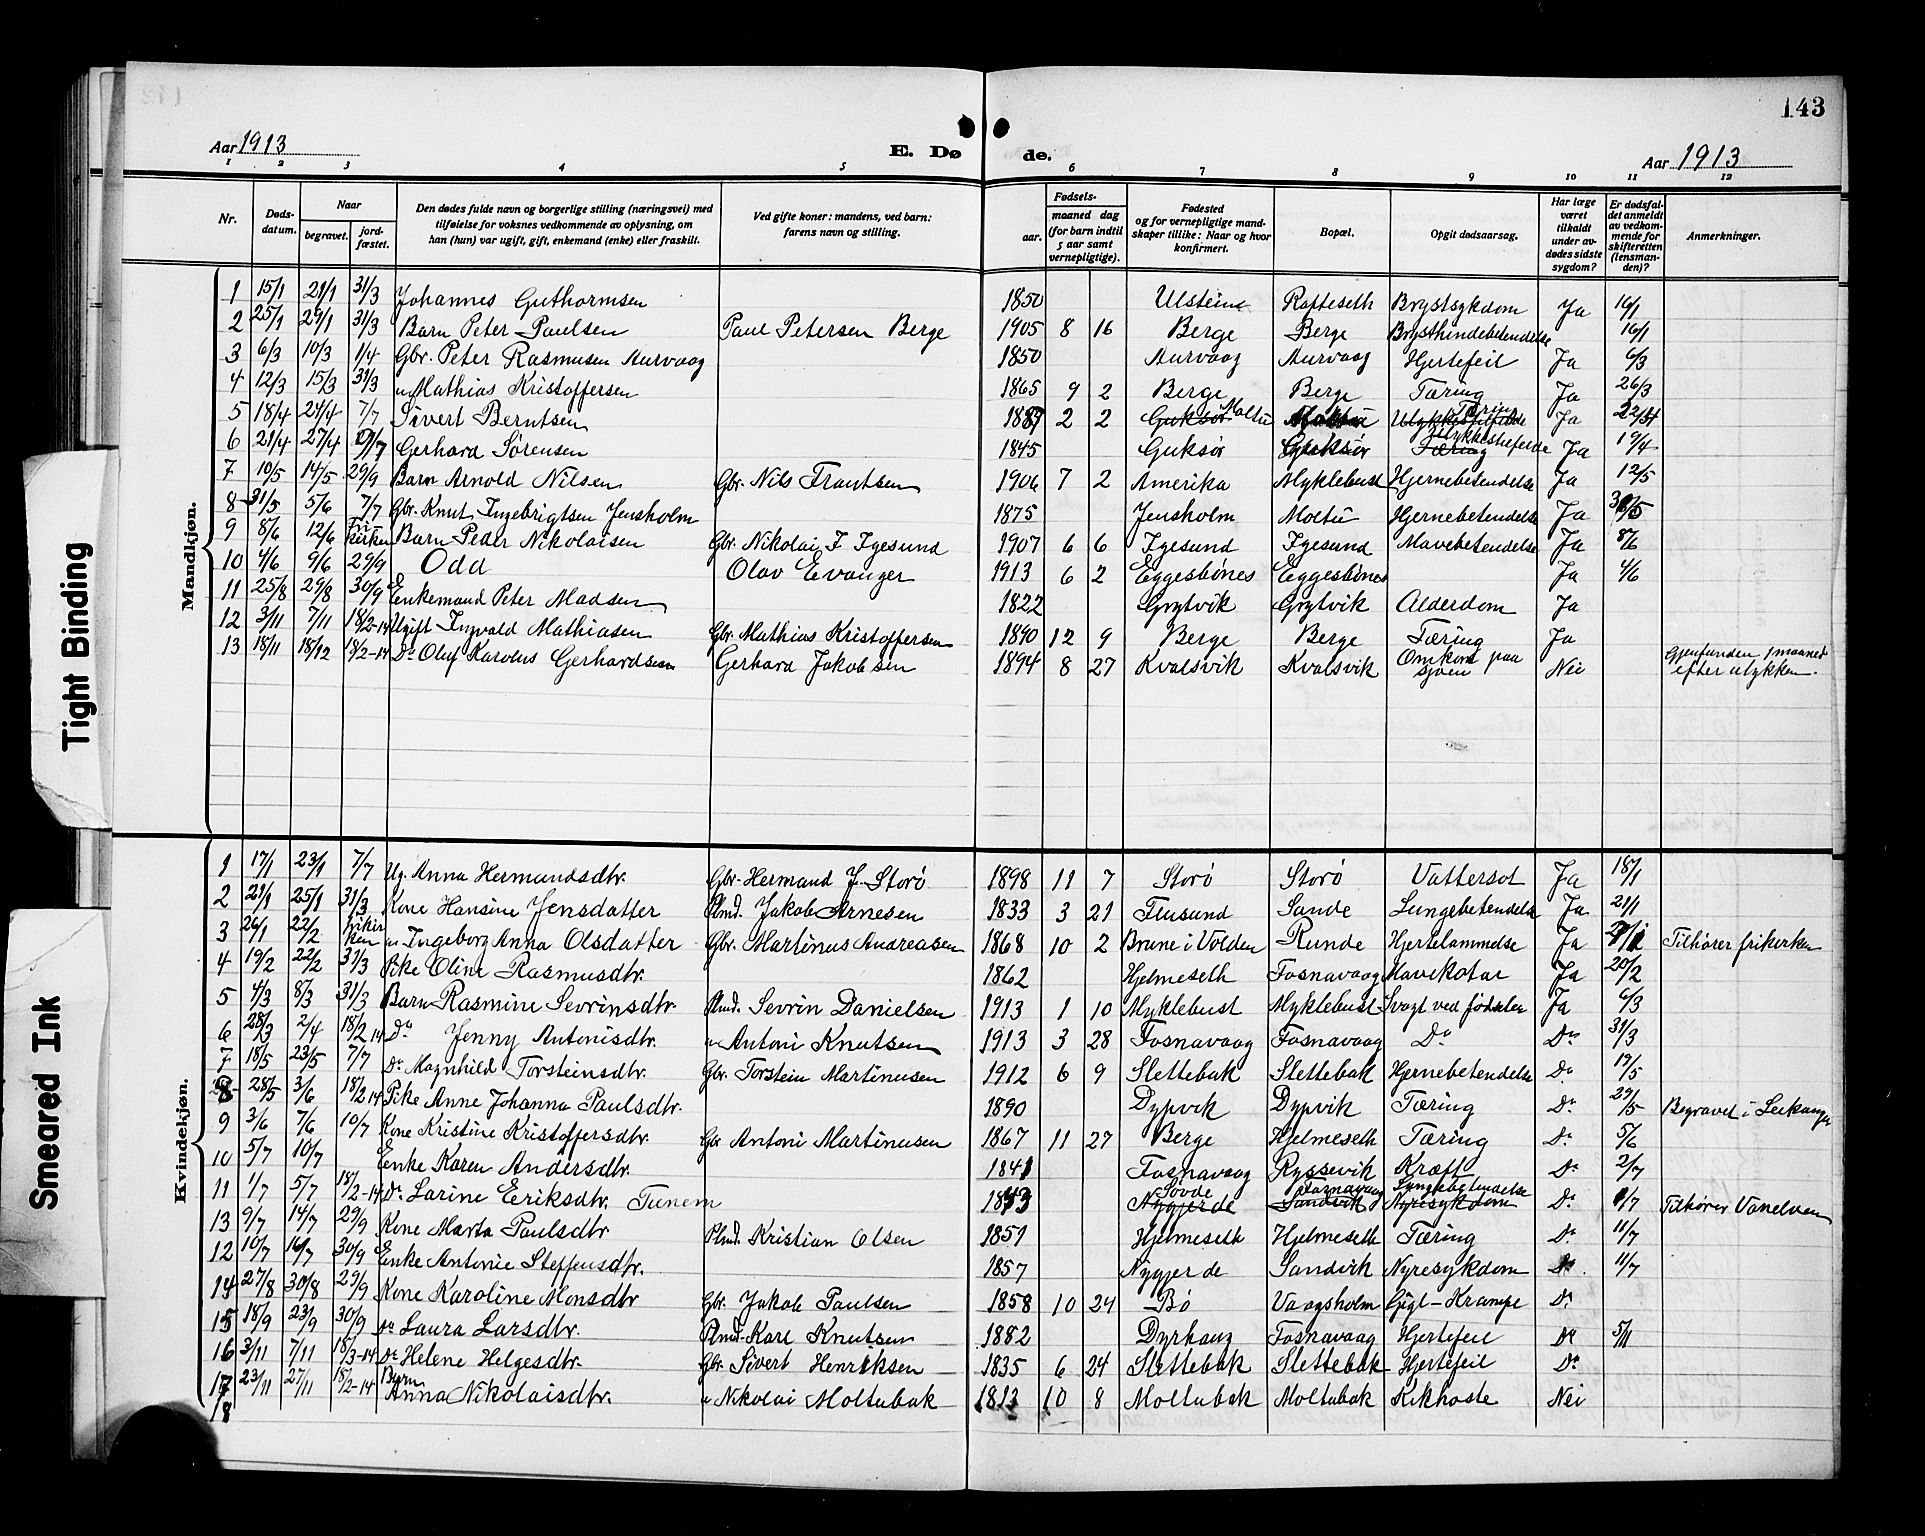 143
Aar 1913
E. Dø
de.
Aar 1913
1 2 3 4 5 6 7 8 9 10 11 12
Nr. Døds-datum. Naar begravet. jord-fæstet. Den dødes fulde navn og borgerlige stilling (næringsvei) med tilføielse for voksnes vedkommende av oplysning, om han (hun) var ugift, gift, enkemand (enke) eller fraskilt. Ved gifte koner: mandens, ved barn: farens navn og stilling. Fødsels- aar. maaned dag (for barn indtil 5 aar samt vernepligtige). Fødested og for vernepligtige mand-skaper tillike: Naar og hvor konfirmert. Bopæl. Opgit dødsaarsag. Har læge været tilkaldt under av-dødes sidste sygdom? Er dødsfal-det anmeldt av vedkom-mende for skifteretten (lensman-den)? Anmerkninger.
Mandkjøn.
1 15/1 21/1 31/3 Johannes Guthormsen 1850 Ulstein Rafteseth Brystsykdom Ja 16/1
2 25/1 29/1 31/3 Barn Peter Paulsen Paul Petersen Berge 1905 8 16 Berge Berge Brysthindebetendelse 16/1
3 6/3 10/3 1/4 Gbr. Peter Rasmusen Aurvaag 1850 Aurvaag Aurvaag Hjertefeil Ja 6/3
4 12/3 15/3 31/3 " Mathias Kristoffersen 1865 9 2 Berge Berge Tæring Ja 26/3
5 18/4 24/4 7/7 Sivert Berntsen 2 2 Guksør Moltu Ulykkestilfælde Tæring Ja
6 21/4 27/4 Gerhard Sørensen 1845 Guksør Guksør Tæring Ulykkestilfelde Ja 19/4
7 10/5 14/5 29/9 Barn Arnold Nilsen Gbr. Nils Frantsen 1906 7 2 Amerika Myklebust Hjernebetendelse Ja 12/5
8 31/5 5/6 7/7 Gbr. Knut Ingebrigtsen Jensholm 1875 Jensholm Moltu Hjernebetendelse Ja
9 8/6 12/6 Fri-kirken Barn Peder Nikolaisen Gbr. Nikolai I Igesund 1907 6 6 Igesund Igesund Mavebetendelse Ja 8/6
10 4/6 9/6 29/9 Odd Olav Evanger 1913 6 2 Eggesbönes Eggesbönes Ja 4/6
11 25/8 29/8 30/9 Enkemand Peter Madsen 1822 Grytvik Grytvik Alderdom Ja
12 3/11 7/11 18/2-14 Ugift Ingvald Mathiasen Gbr. Mathias Kristoffersen 1890 12 9 Berge Berge Tæring Ja
13 18/11 18/12 18/2-14 Do Oluf Karolus Gerhardsen Gerhard Jakobsen 1894 8 27 Kvalsvik Kvalsvik Omkom paa sjøen Nei Gjenfunden 1 maaned efter ulykken.
Kvindekjøn.
1 17/1 23/1 7/7 Ug. Anna Hermandsdtr. Gbr. Hermand J. Storø 1898 11 7 Storø Storø Vattersot Ja 18/1
2 21/1 25/1 31/3 Kone Hansine Jensdatter Plmd. Jakob Arnesen 1833 3 21 Flusund Sande Lungebetendelse Ja 21/1
3 26/1 22/2 Frikir ken " Ingeborg Anna Olsdatter Gbr. Martinus Andreasen 1868 10 2 Brune i Volden Runde Hjertelammelse Ja Tilhører frikirken
4 19/2 22/2 31/3 Pike Oline Rasmusdtr. 1862 Hjelmeseth Fosnavaag Mavekatar Ja 20/2
5 4/3 8/3 31/3 Barn Rasmine Sevrinsdtr. Plmd. Sevrin Danielsen 1913 1 10 Myklebust Myklebust Svagt ved fødselen Ja 6/3
6 28/3 2/4 18/2 14 Do Jenny Antonisdtr. " Antoni Knutsen 1913 3 28 Fosnavaag Fosnavaag Do Do 31/3
7 18/5 23/5 7/7 Do Magnhild Torsteinsdtr. Gbr. Torstein Martinusen 1912 6 9 Slettebak Slettebak Hjernebetendelse Do 19/5
8 28/5 3/6 18/2 14 Pike Anne Johanna Paulsdtr. 1890 Dypvik Dypvik Tæring Do 29/5 Begravet i Leikanger
9 3/6 7/6 10/7 Kone Kristine Kristoffersdtr. Gbr Antoni Martinusen 1867 11 27 Berge Hjelmeseth Tæring Do 5/6
10 5/7 10/7 Enke Karen Andersdtr. 1841 Fosnavaag Ryssevik Kræft Do 2/7
11 1/7 5/7 18/2-14 Do Larine Eeriksdtr. Tunem Nygjerde Søvde Sandvik Fosnavaag Nyresykdom Lungebetendelse Do Tilhører Vanelven
13 9/7 14/7 29/9 Kone Marta Paulsdtr Plmd. Kristian Olsen 1851 Hjelmeseth Hjelmeseth Tæring Do 11/7
12 10/7 16/7 30/9 Enke Antonie Steffensdtr. 1857 Nygjerde Sandvik Nyresykdom Do 11/7
14 27/8 30/8 29/9 Kone Karoline Monsdtr Gbr. Jakob Paulsen 1858 10 24 Bø Vaagsholm Gigt-Krampe Do
15 18/9 23/9 30/9 Do Laura Larsdtr. Plmd. Karl Knutsen 1882 Dyrhaug Fosnavaag Hjertefeil Do 5/11
16 3/11 7/11 18/3-14 Do Helene Helgesdtr. Gbr. Sivert Henriksen 1835 6 24 Slettebak Slettebak Hjertefeil Do
17 23/11 27/11 18/2-14 Barn Anna Nikolaisdtr. " Nikolai Moltubak 1813 10 8 Moltubak Moltubak Kikhoste Nei
18
Tight Binding
Smeared Ink